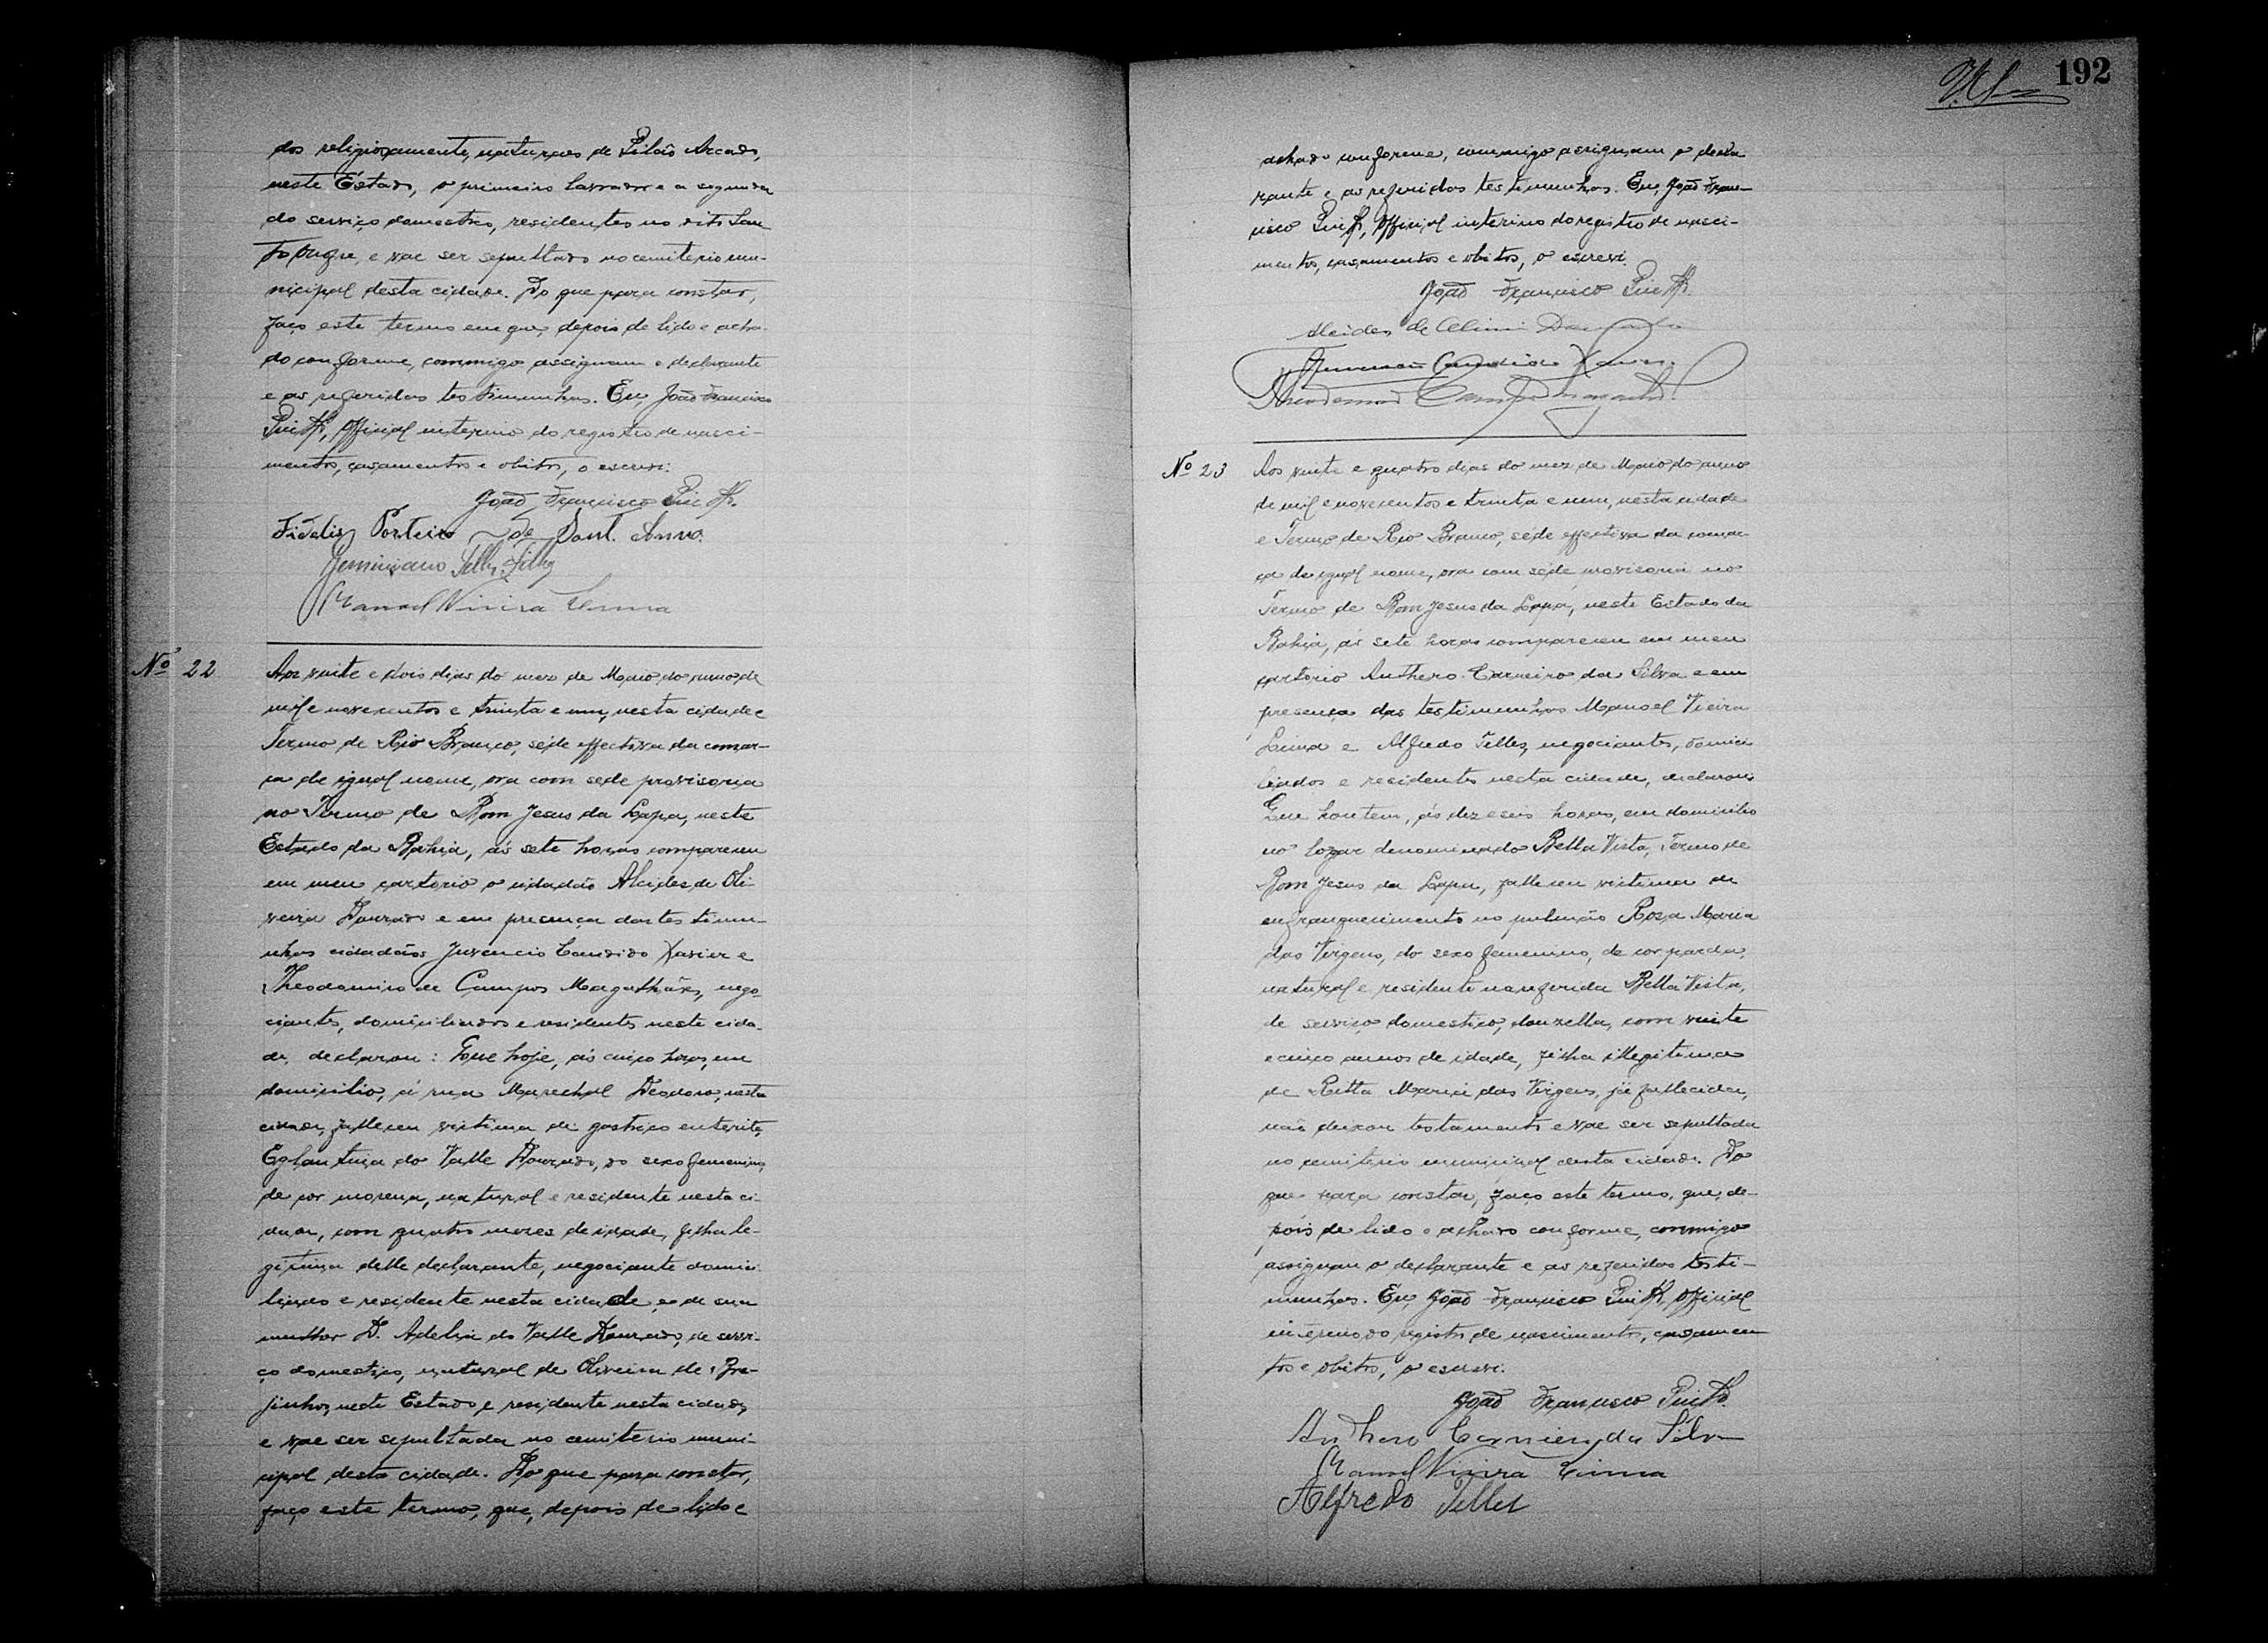 dos religiosamente, naturaes de Pilão Arcado,
neste Estado, o primeiro lavrador e a segunda
do serviço domestico, residentes no dito San
to Onofre, e vae ser sepultado no cemiterio mu-
nicipal desta cidade. Do que para constar,
faço este termo em que, depois de lido e acha-
do conforme, commigo assignam o declarante
e as referidas testimunhas. Eu, João Francisco
official interino do registro de nasci-
mentos, casamentos e obitos, o escrevi.
João Francisco
Fidelis Porteiro de Sant. Anna.
Geminiano Telles Filho
Manoel Vieira Lima
Nº 22
Aos vinte e dois dias do mez de Maio do anno de
mil e novecentos e trinta e um, nesta cidade e
Termo de Rio Branco, séde effectiva da comar-
ca de igual nome, ora com sede provisoria
no Termo de Bom Jesus da Lapa, neste
Estado da Bahia, ás sete horas compareceu
em meu cartorio o cidadão Alcides de Oli-
veira Dourado e em presença das testimu-
nhas cidadãos Juvencio Candido Xavier e
Theodomiro de Campos Magalhães, nego-
ciantes, domiciliados e residentes neste cida-
de, declarou: Que hoje, ás cinco horas, em
domicilio, á rua Marechal Deodoro, nesta
cidade, falleceu victima de gastrico enterite,
Eglantina do Valle Dourado, do sexo femenino,
de cor morena, natural e residente nesta ci-
dade, com quatro mezes de idade, filha le-
gitima delle declarante, negociante domici-
liado e residente nesta cidade, e de sua
mulher D. Adelia do Valle Dourado, de servi-
ço domestico, natural de Oliveira de Bre-
jinhos, neste Estado e residente nesta cidade,
e vae ser sepultada no cemiterio muni-
cipal desta cidade. Do que para constar,
faço este termo, que, depois de lido e
192
achado conforme, commigo assignam o decla
rante e as referidas testimunhas. Eu, João Fran-
cisco official interino do registro de nasci-
mentos, casamentos e obitos, o escrevi.
João Francisco
Alcides de Oliveira Dourado
Juvencio Candido Xavier
Theodomiro Campos Magalhães
Nº 23
Aos vinte e quatro dias do mez de Maio do anno
de mil e novecentos e trinta e um, nesta cidade
e Termo de Rio Branco, séde effectiva da comar
ca de igual nome, ora com séde provisoria no
Termo de Bom Jesus da Lapa, neste Estado da
Bahia, ás sete horas compareceu em meu
cartorio Anthero Carneiro da Silva e em
presença das testimunhas Manoel Vieira
Lima e Alfredo Telles, negociantes, domici
liados e residentes nesta cidade, declarou:
Que hontem, ás dezeseis horas, em domicilio
no logar denominado Bella Vista, Termo de
Bom Jesus da Lapa, falleceu victima de
enfranquecimento no pulmão Rosa Maria
das Virgens, do sexo femenino, de cor parda,
natural e residente na referida Bella Vista,
de serviço domestico, donzella, com vinte
e cinco annos de idade, filha illegitima
de Ritta Maria das Virgens, já fallecida,
não deixou testamento e vae ser sepultada
no cemiterio municipal desta cidade. Do
que para constar, faço este termo, que, de-
pois de lido e achado conforme, commigo
assignam o declarante e as referidas testi-
munhas. Eu, João Francisco official
interino do registro de nascimentos, casamen
tos e obitos, o escrevi.
João Francisco
Anthero Carneiro da Silva
Manoel Vieira Lima
Alfredo Telles